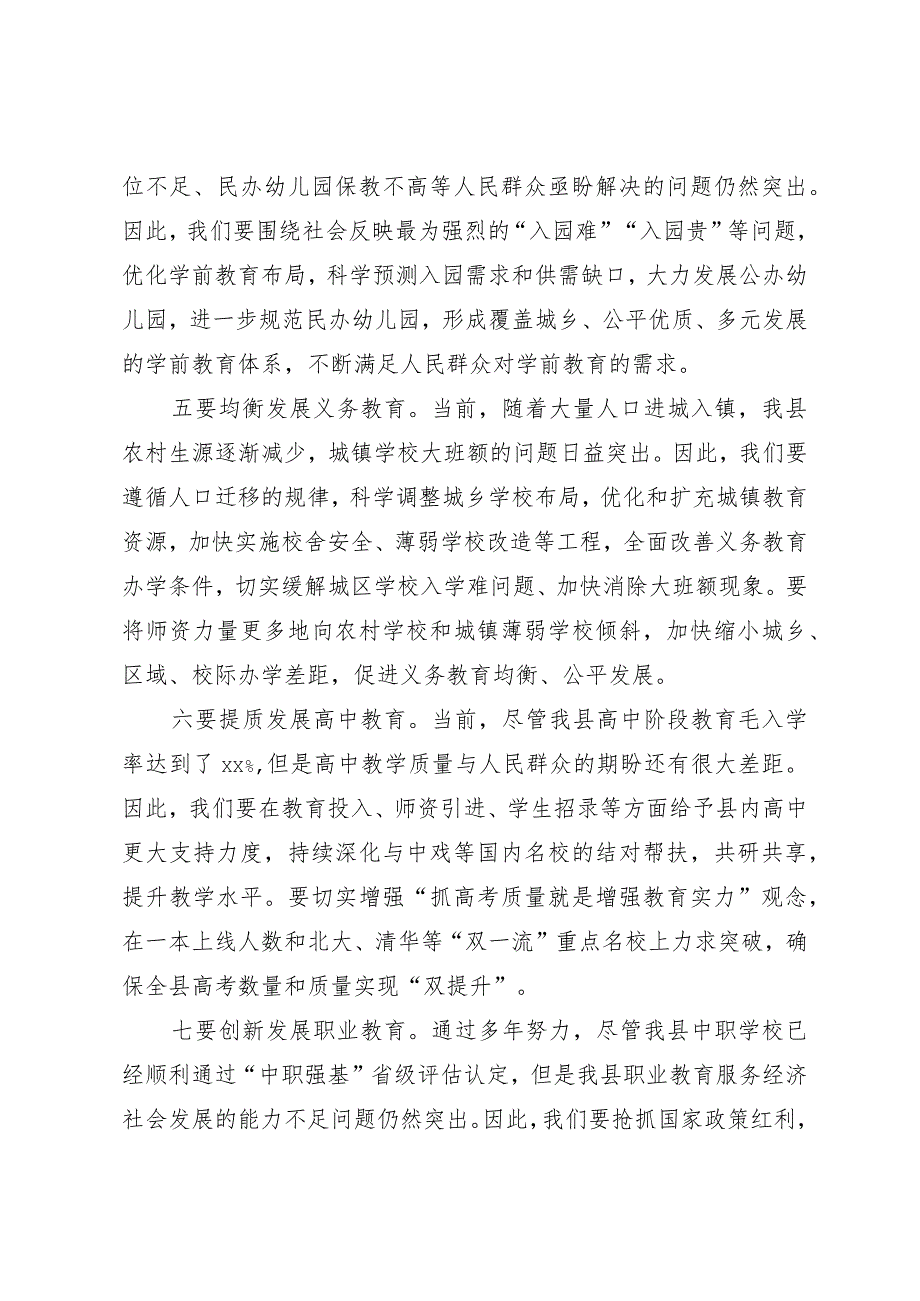 位不足、民办幼儿园保教不高等人民群众亟盼解决的问题仍然突出。
因此，我们要围绕社会反映最为强烈的“入园难”“入园贵”等问题，
优化学前教育布局，科学预测入园需求和供需缺口，大力发展公办幼
儿园，进一步规范民办幼儿园，形成覆盖城乡、公平优质、多元发展
的学前教育体系，不断满足人民群众对学前教育的需求。
五要均衡发展义务教育。当前，随着大量人口进城入镇，我县
农村生源逐渐减少，城镇学校大班额的问题日益突出。因此，我们要
遵循人口迁移的规律，科学调整城乡学校布局，优化和扩充城镇教育
资源，加快实施校舍安全、薄弱学校改造等工程，全面改善义务教育
办学条件，切实缓解城区学校入学难问题、加快消除大班额现象。要
将师资力量更多地向农村学校和城镇薄弱学校倾斜，加快缩小城乡、
区域、校际办学差距，促进义务教育均衡、公平发展。
六要提质发展高中教育。当前，尽管我县高中阶段教育毛入学
率达到了 xx%,但是高中教学质量与人民群众的期盼还有很大差距。
因此，我们要在教育投入、师资引进、学生招录等方面给予县内高中
更大支持力度，持续深化与中戏等国内名校的结对帮扶，共研共享，
提升教学水平。要切实增强“抓高考质量就是增强教育实力”观念，
在一本上线人数和北大、清华等“双一流”重点名校上力求突破，确
保全县高考数量和质量实现“双提升”。
七要创新发展职业教育。通过多年努力，尽管我县中职学校已
经顺利通过“中职强基”省级评估认定，但是我县职业教育服务经济
社会发展的能力不足问题仍然突出。因此，我们要抢抓国家政策红利，